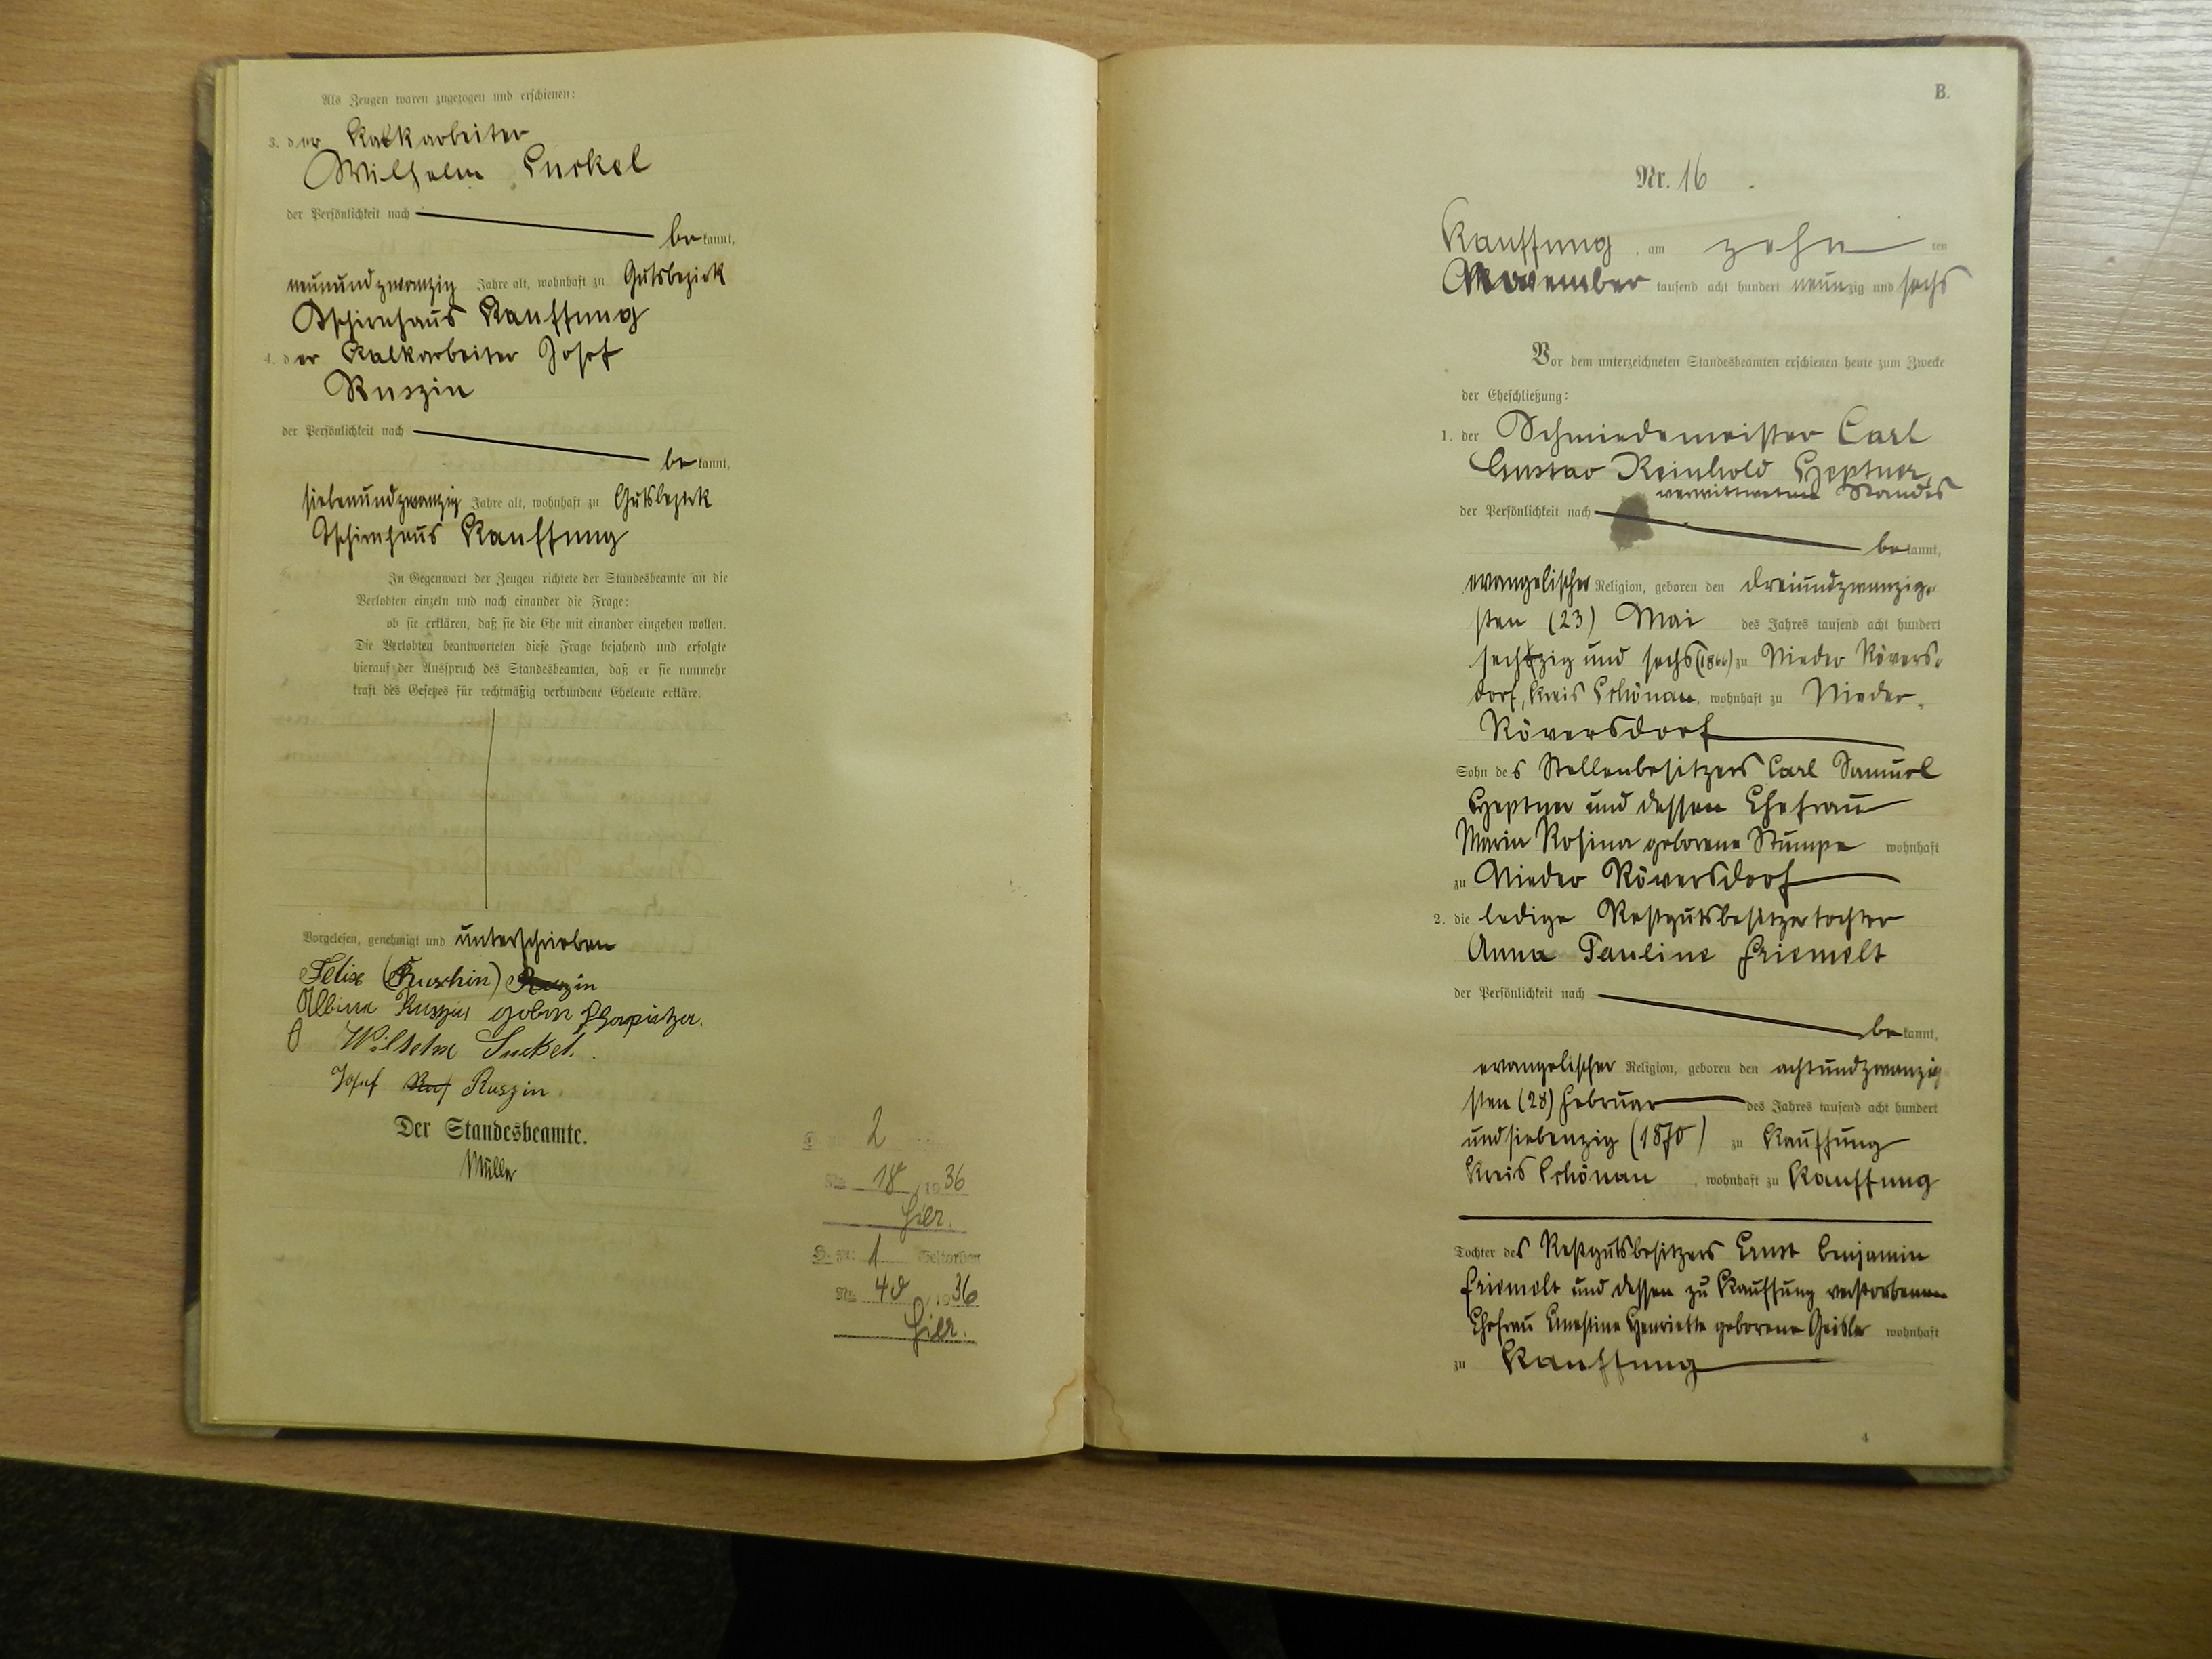 Als Zeugen waren zugezogen und erschienen:
3. der Kalkarbeiter
Wilhelm Suckel
der Persönlichkeit nach
bekannt,
neunundzwanzig Jahre alt, wohnhaft zu Gutsbezirk
Tschirnhaus Kauffung
4. der Kalkarbeiter Josef
Ruszin
der Persönlichkeit nach
bekannt,
siebenundzwanzig Jahre alt, wohnhaft zu Gutsbezirk
Tschirnhaus Kauffung
In Gegenwart der Zeugen richtete der Standesbeamte an die
Verlobten einzeln und nach einander die Frage:
ob sie erklären, daß sie die Ehe mit einander eingehen wollen.
Die Verlobten beantworteten diese Frage bejahend und erfolgte
hierauf der Ausspruch des Standesbeamten, daß er sie nunmehr
kraft des Gesetzes für rechtmäßig verbundene Eheleute erkläre.
Vorgelesen, genehmigt und unterschrieben
Felix (Ruschin) Ruszin
Albina Ruszin
Wilhelm Suckel.
Josef Ruszin
Der Standesbeamte.
Müller
2
Nr. 18 / 1936
hier.
1 Gestorben
Nr. 40 / 1936
hier.
B.
Nr. 16
Kauffung, am zehnten
November tausend acht hundert neunzig und sechs
Vor dem unterzeichneten Standesbeamten erschienen heute zum Zwecke
der Eheschließung:
1. der Schmiedemeister Carl
Gustav Reinhold Heptner,
verwittweten Standes
der Persönlichkeit nach
bekannt,
evangelischer Religion, geboren den dreiundzwanzig-
sten (23) Mai des Jahres tausend acht hundert
sechszig und sechs (1866) zu Nieder Rövers-
dorf, Kreis Schönau, wohnhaft zu Nieder-
Röversdorf
Sohn des Stellenbesitzers Carl Samuel
Heptner und dessen Ehefrau
Maria Rosina geborene Stumpe wohnhaft
zu Nieder Röversdorf
2. die ledige Restgutsbesitzertochter
Anna Pauline Friemelt
der Persönlichkeit nach
bekannt,
evangelischer Religion, geboren den achtundzwanzig
sten (28) Februar des Jahres tausend acht hundert
und siebenzig (1870) zu Kauffung
Kreis Schönau, wohnhaft zu Kauffung
Tochter des Restgutsbesitzers Ernst Benjamin
Friemelt und dessen zu Kauffung verstorbenen
Ehefrau Ernestine Henriette geborene Geisler wohnhaft
zu Kauffung
4